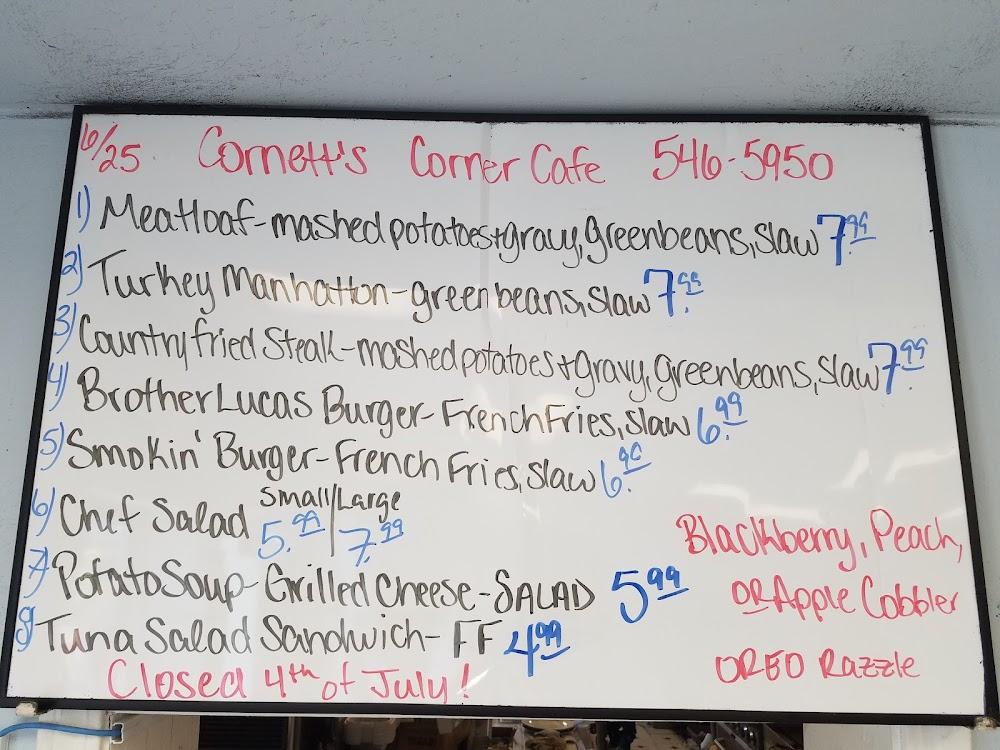 6/25. Cornett's Corner Cafe 546-5950
1) Meatloaf-mashed potatoes+gravy, greenbeans, slaw 7.99
2) Turkey Manhatton-green beans, slaw 7.99
3) Country fried Steak-mashed potatoes+gravy, greenbeans, slaw 7.99
4) Brother Lucas Burger-French Fries, slaw 6.99
5) Smokin' Burger-French Fries, slaw 6.99
6) Chef Salad Small/Large 5.99/7.99
7) Potato Soup-Grilled Cheese-SALAD 5.99
8) Tuna Salad Sandwich-FF 4.99
Closed 4th of July!
Blackberry, Peach,
OR Apple Cobbler
OREO Razzle